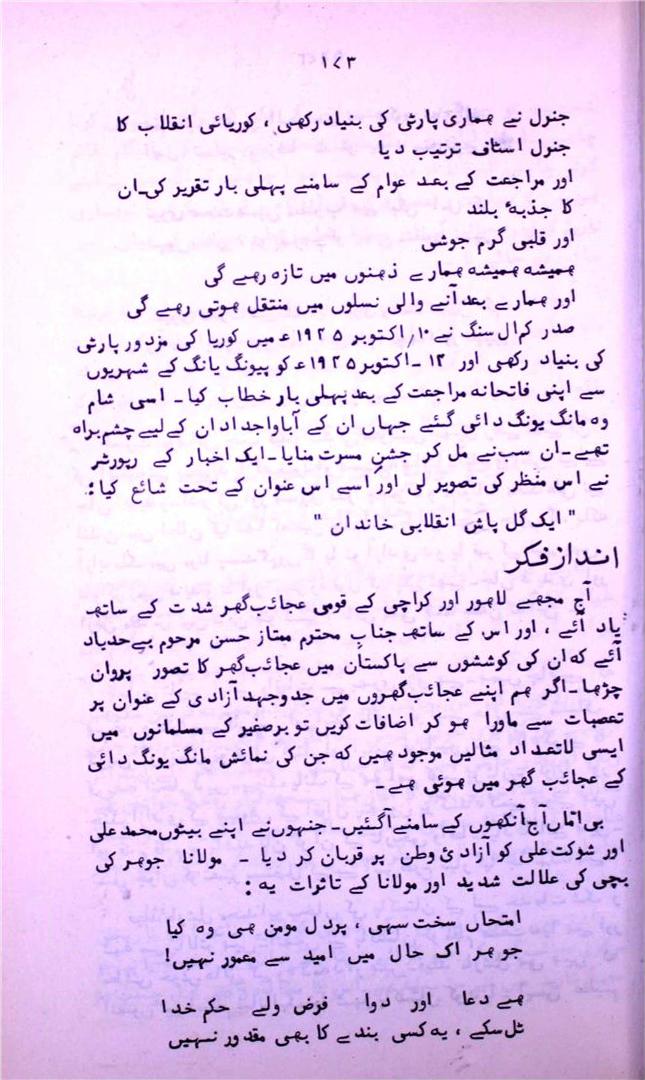 ۱۷۳
جنرل نے ہماری پارٹی کی بنیاد رکھی ، کوریائی انقلاب کا
جنرل اسٹاف ترتیب دیا
اور مراجعت کے بعد عوام کے سامنے پہلی بار تقریر کی۔ان
کا جذبۂ بلند
اور قلبی گرم جوشی
ہمیشہ ہمیشہ ہمارے ذہنوں میں تازہ رہے گی
اور ہمارے بعد آنے والی نسلوں میں منتقل ہوتی رہے گی
صدر کم ال سنگ نے ۱۰/ اکتوبر ۱۹۲۵ء میں کوریا کی مزدور پارٹی
کی بنیاد رکھی اور ۱۲ ۔ اکتوبر ۱۹۲۵ء کو پیونگ یانگ کے شہریوں
سے اپنی فاتحانہ مراجعت کے بعد پہلی بار خطاب کیا۔ اسی شام
وہ مانگ یونگ دائی گئے جہاں ان کے آباواجداد ان کے لیے چشم براہ
تھے۔ان سب نے مل کر جشن مسرت منایا۔ایک اخبار کے رپورٹر
نے اس منظر کی تصویر لی اور اسے اس عنوان کے تحت شائع کیا:
" ایک گل پاش انقلابی خاندان "
انداز فکر
آج مجھے لاہور اور کراچی کے قومی عجائب گھر شدت کے ساتھ
یاد آئے ، اور اس کے ساتھ جناب محترم ممتاز حسن مرحوم بے حد یاد
آئے کہ ان کی کوششوں سے پاکستان میں عجائب گھر کا تصور پروان
چڑھا۔اگر ہم اپنے عجائب گھروں میں جدوجہد آزادی کے عنوان پر
تعصبات سے ماورا ہو کر اضافات کریں تو برصغیر کے مسلمانوں میں
ایسی لاتعداد مثالیں موجود ہیں کہ جن کی نمائش مانگ یونگ دائی
کے عجائب گھر میں ہوئی ہے۔
بی امّاں آج آنکھوں کے سامنے آگئیں۔جنہوں نے اپنے بیٹوں محمد علی
اور شوکت علی کو آزادیٔ وطن پر قربان کر دیا ۔ مولانا جوہر کی
بچی کی علالت شدید اور مولانا کے تاثرات یہ :
امتحاں سخت سہی ، پر دل مومن ہی وہ کیا
جو ہر اک حال میں امید سے معمور نہیں!
ہے دعا اور دوا فرض ولے حکم خدا
ٹل سکے ، یہ کسی بندے کا بھی مقدور نہیں